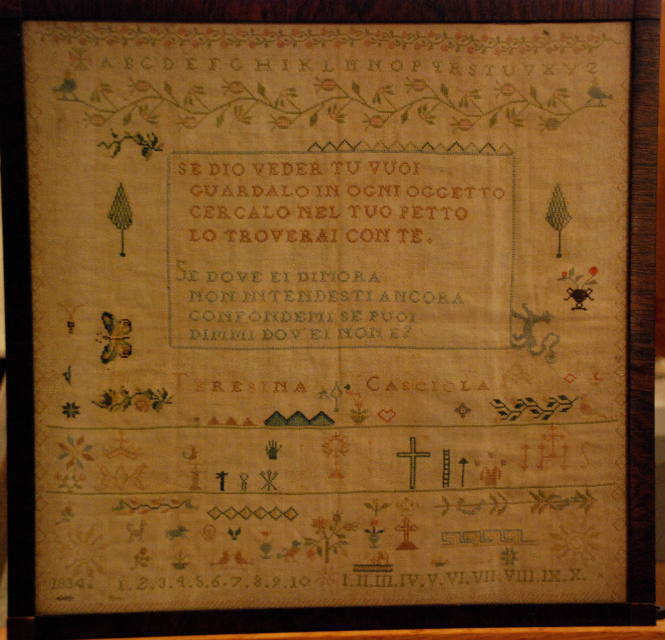 A B C D E F G H I K L M N O P Q R S T U V X Y Z
SE DIO VEDER TU VUOI
GUARDALO IN OGNI OGGETTO
CERCALO NEL TUO PETTO
LO TROVERAI CON TE.
SE DOVE EI DIMORA
NON INTENDESTI ANCORA
CONFONDEMI SE PUOI
DIMMI DOV'EI NON E?
TERESINA CASCIOLA
1834. 1.2.3.4.5.6.7.8.9.10 I.II.III.IV.V.VI.VII.VIII.IX.X.